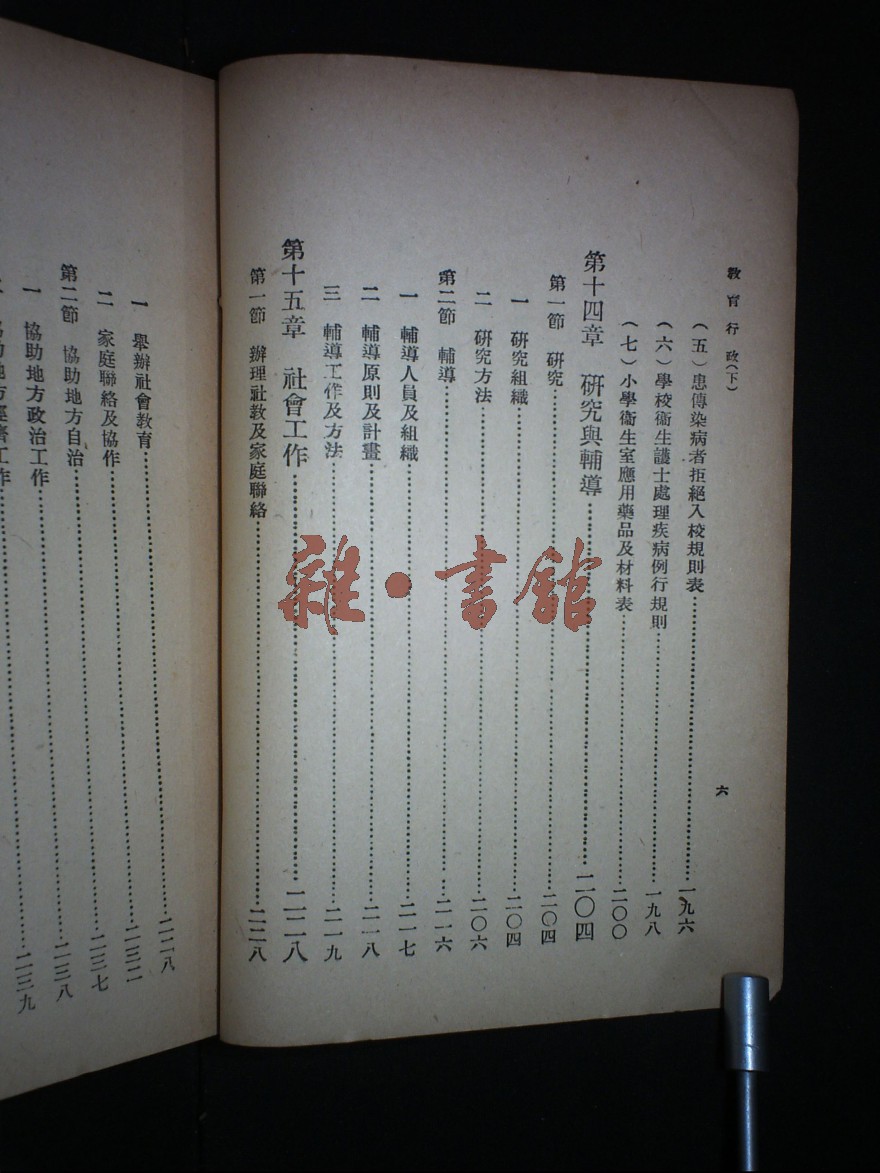 教育行政(下)
六
(五)患傳染病者拒絕入校規則表……一九六
(六)學校衞生護士處理疾病例行規則……一九八
(七)小學衞生室應用藥品及材料表……二〇〇
第十四章 研究與輔導……二〇四
第一節 研究……二〇四
一 研究組織……二〇四
二 研究方法……二〇六
第二節 輔導……二一六
一 輔導人員及組織……二一七
二 輔導原則及計畫……二一八
三 輔導工作及方法……二一九
第十五章 社會工作……二二八
第一節 辦理社教及家庭聯絡……二二八
一 舉辦社會教育……二二八
二 家庭聯絡及協作……二三二
第二節 協助地方自治……二三七
一 協助地方政治工作……二三八
協助地方經濟工作……二三九
雜·書館